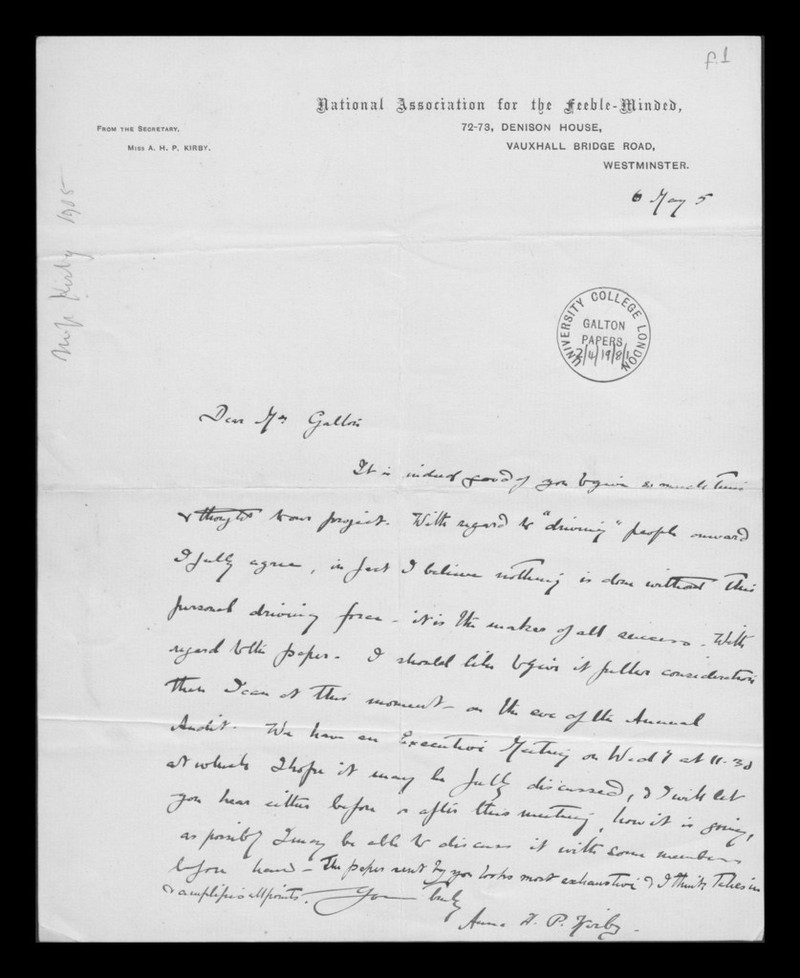 f.1
National Association for the Feeble-Minded,
72-73, DENISON HOUSE,
VAUXHALL BRIDGE ROAD,
WESTMINSTER.
FROM THE SECRETARY,
MISS A. H. P. KIRBY.
6 May 5
Miss Kirby 1905
UNIVERSITY COLLEGE LONDON
GALTON
PAPERS
2/4/19/8/1
Dear Mr Galton
It is indeed good of you to give so much time
& thought to our project. With regard to "driving" people onward
I fully agree, in fact I believe nothing is done without this
personal driving force - it is the maker of all success. With
regard to the paper - I should like to give it fuller consideration
than I can at this moment - on the eve of the Annual
Audit. We have an Executive Meeting on Wed at 11.30
at which I hope it may be fully discussed, & I will let
you hear either before or after this meeting, how it is going,
as possibly I may be able to discuss it with some members
before hand - The paper sent by you looks most exhaustive & I think takes in
& amplifies all points. Yours truly
Anna H. P. Kirby.